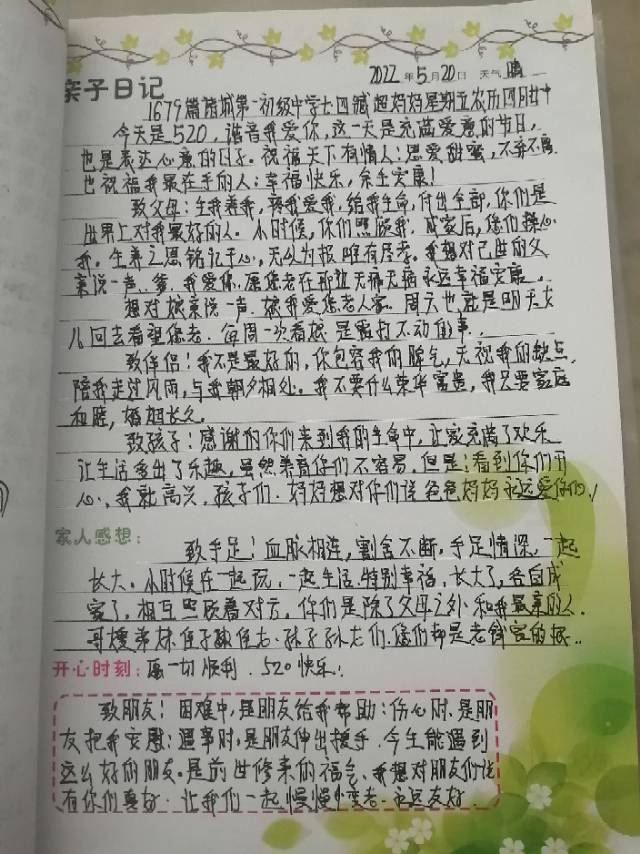 亲子日记 2022年5月20日 天气 晴
1679篇诸城第一初级中学七四 超妈妈星期五农历四月廿
今天是520,谐音我爱你,这一天是充满爱意的节日,
也是表达心意的日子。祝福天下有情人:恩爱甜蜜,不弃不离
也祝福我最在乎的人:幸福快乐,余生安康!
致父母:生我养我,疼我爱我,给我生命,付出全部,你们是
世界上对我最好的人。小时候,你们照顾我,成家后,您们操心
我。生养之恩铭记于心,无以为报唯有尽孝。我想对已故的父
亲说一声、爹,我爱你,愿您老在那边无痛无病永远幸福安康。
想对娘亲说一声,娘我爱您老人家。周六也就是明天女
儿回去看望您老。每周一次看娘是最打不动的事.
致伴侣!我不是最好的,你包容我的脾气,无视我的缺点,
陪我走过风雨,与我朝夕相处。我不要什么荣华富贵,我只要家庭
和睦,婚姻长久。
致孩子:感谢你们来到我的生命中,让家充满了欢乐
让生活多出了乐趣,虽然养育你们不容易,但是:看到你们开
心,我就高兴,孩子们.妈妈想对你们说爸爸妈妈永远爱你们!
家人感想: 致手足!血脉相连,割舍不断,手足情深,一起
长大。小时候在一起玩,一起生活特别幸福,长大了,各自成
家了,相互照顾着对方,你们是除了父母之外,和我最亲的人.
哥嫂弟妹侄子 侄女.孙子孙女们.您们都是老 家的根..
开心时刻: 愿一切顺利.520快乐!
致朋友!困难中,是朋友给我帮助:伤心时,是朋
友把我安慰:遇事时,是朋友伸出援手.今生能遇到
这么好的朋友。是前世修来的福气、我想对朋友们说
有你们真好.让我们一起慢慢变老.永远友好.